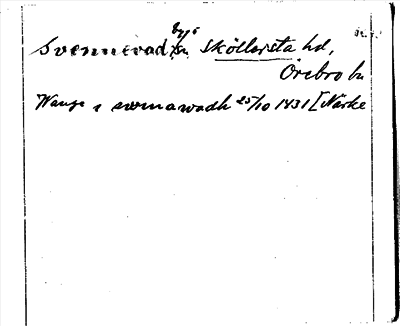 Svennevad, Sköllersta hd,
Örebro ln
Wange i swenawadh 25/10 1431 [Närke